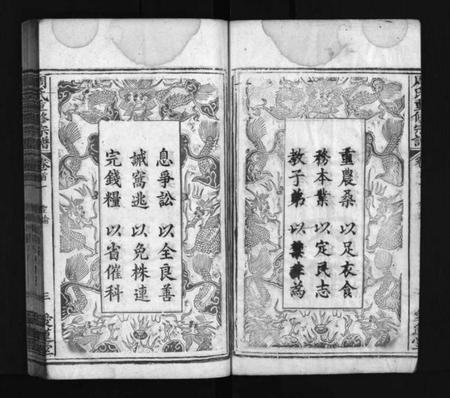 重農桑 以足衣食
務本業 以定民志
教子弟 以禁非為
息爭訟 以全良善
誡窩逃 以免株連
完錢糧 以省催科